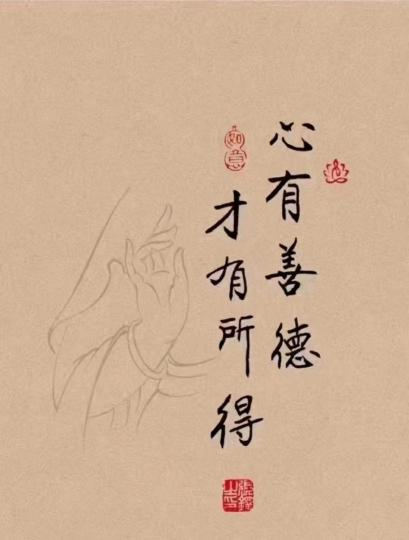 心有善德
才有所得
如意